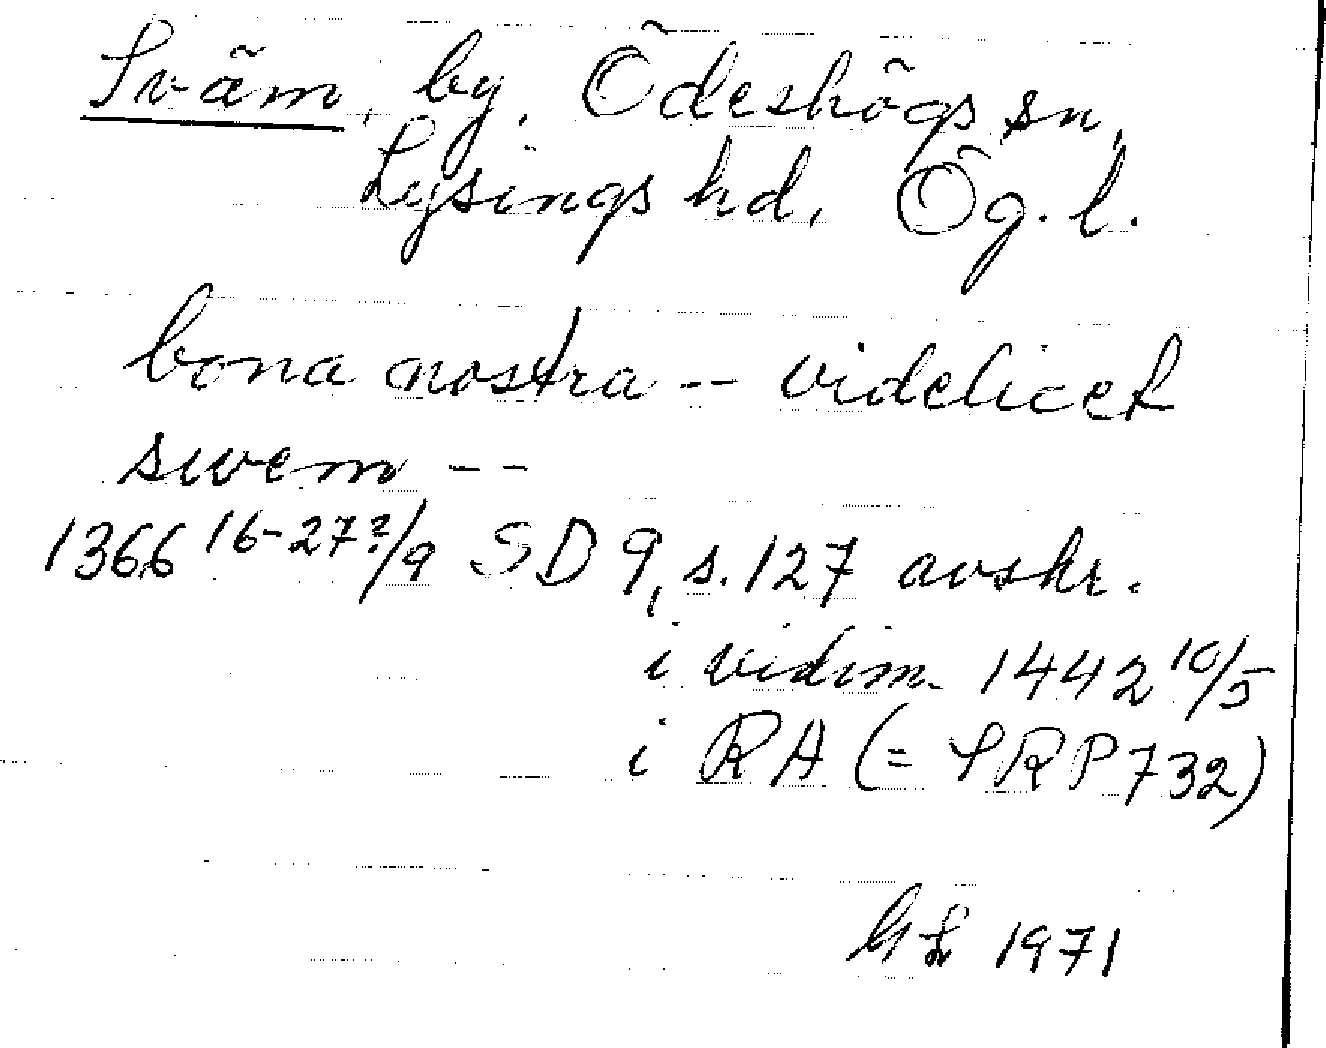 Sväm, by, Ödeshögs sn,
Lysings hd, Ög. l.
bona nostra -- videlicet
swem --
1366 16-27?/9 SD 9, s. 127 avskr.
i vidim. 1442 10/5
i RA (= SRP 732)
1971